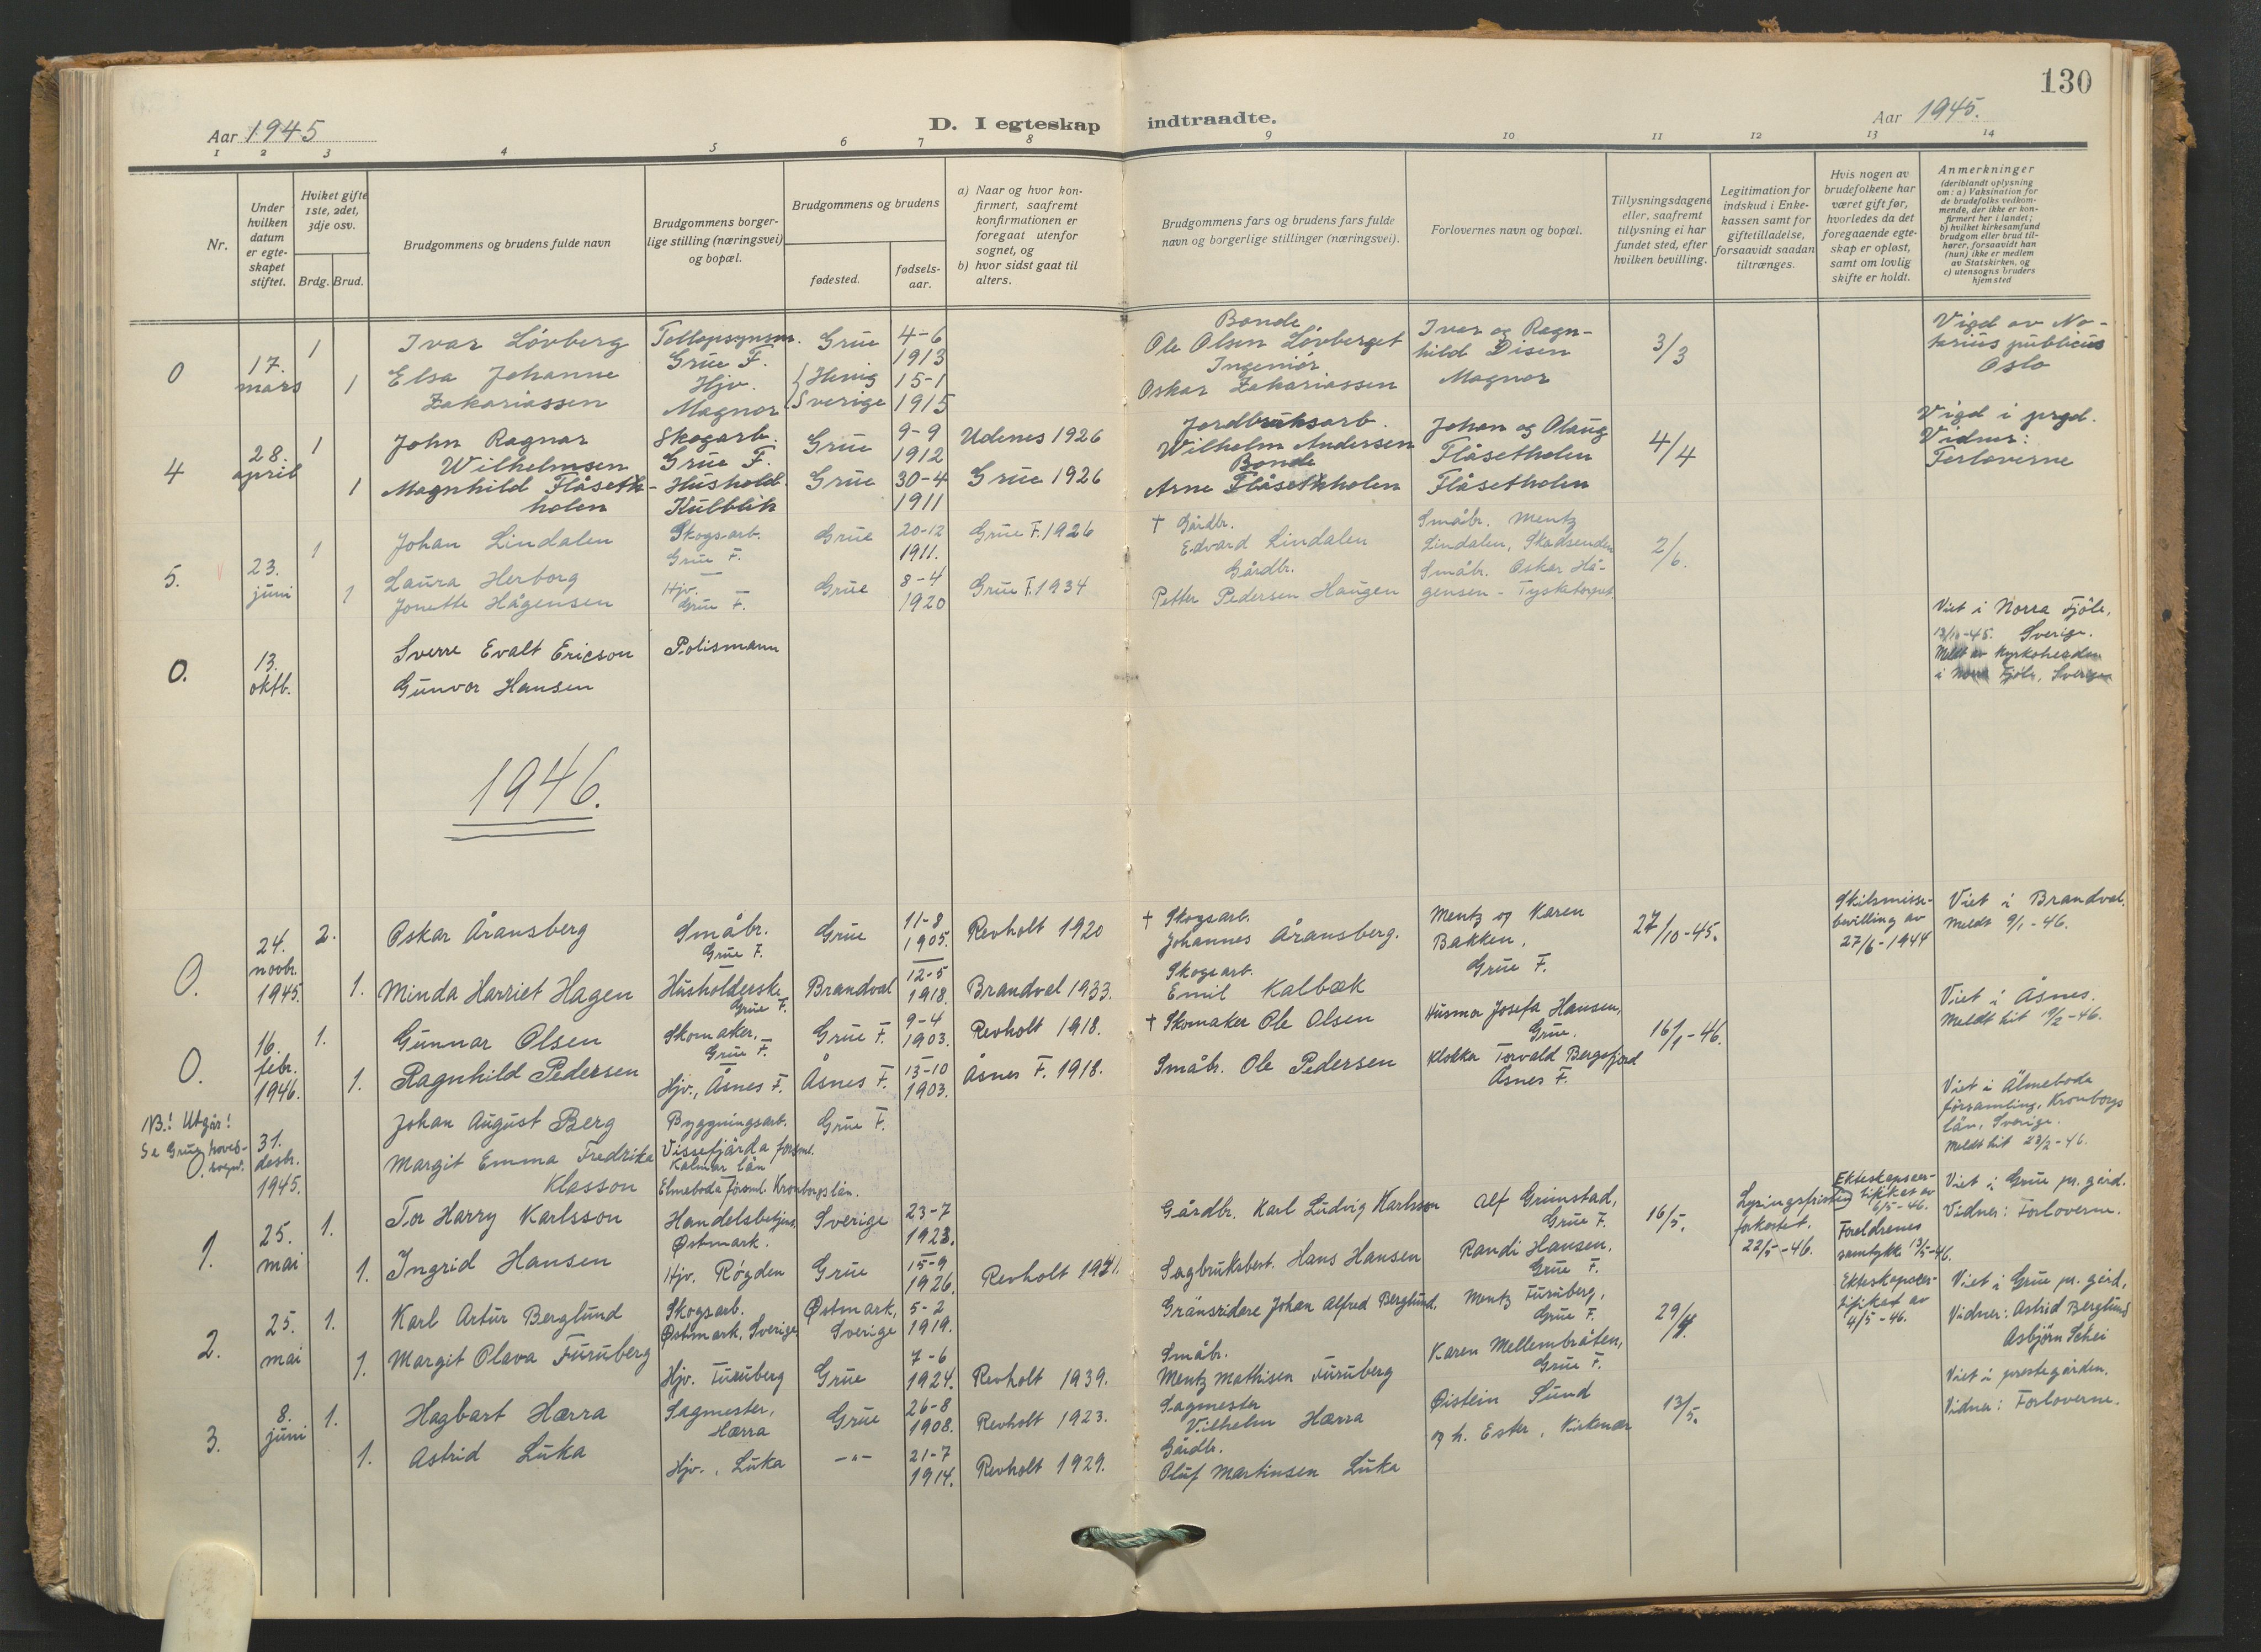 130
Aar 1945
D. I egteskap indtraadte.
Aar 1945.
1 2 3 4 5 6 7 8 9 10 11 12 13 14
Nr.
Under
hvilken
datum
er egte-
skapet
stiftet.
Hviket gifte
1ste, 2det,
3dje osv.
Brdg. Brud.
Brudgommens og brudens fulde navn
Brudgommens borger-
lige stilling (næringsvei)
og bopæl.
Brudgommens og brudens
fødested.
fødsels-
aar.
a) Naar og hvor kon-
firmert, saafremt
konfirmationen er
foregaat utenfor
sognet, og
b) hvor sidst gaat til
alters.
Brudgommens fars og brudens fars fulde
navn og borgerlige stillinger (næringsvei).
Forlovernes navn og bopæl.
Tillysningsdagene
eller, saafremt
tillysning ei har
fundet sted, efter
hvilken bevilling.
Legitimation for
indskud i Enke-
kassen samt for
giftetilladelse,
forsaavidt saadan
tiltrænges.
Hvis nogen av
brudefolkene har
været gift før,
hvorledes da det
foregaaende egte-
skap er opløst,
samt om lovlig
skifte er holdt.
Anmerkninger
(deriblandt oplysning
om: a) Vaksination for
de brudefolks vedkom-
mende, der ikke er kon-
firmert her i landet;
b) hvilket kirkesamfund
brudgom eller brud til-
hører, forsaavidt han
(hun) ikke er medlem
av Statskirken, og
c) utensogns bruders
hjemsted
0
17.
mars
1
1
Ivar Løvberg
Elsa Johanne
Zakariassen
Tollopsynsm.
Grue F.
Hjv.
Magnor
Grue
Sverige
4-6
1913
15-1
1915
Bonde
Ole Olsen Løvberget
Ingeniör
Oskar Zakariassen
Ivar og Ragn-
hild Disen
Magnor
3/3
Vigd av No-
tarius publicus
Oslo
4
28.
april
1
1
John Ragnar
Wilhelmsen
Magnhild Flåseth-
holen
Skogarb.
Grue F.
Hushold.
Kulblik
Grue
Grue
9-9
1912
30-4
1911
Udenes 1926
Grue 1926
Jordbruksarb.
Wilhelm Andersen
Bonde
Arne Flåsethholen
Johan og Olaug
Flåsetholen
Flåsetholen
4/4
Vigd i prgd.
Vidner:
Forloverne
5.
23.
juni
1
1
Johan Lindalen
Laura Herborg
Jonette Hågensen
Skogsarb.
Grue F.
Hjv.
Grue F.
Grue
Grue
20-12
1911.
8-4
1920
Grue F. 1926
Grue F. 1934
† Gårdbr.
Edvard Lindalen
Gårdbr.
Petter Pedersen Haugen
Småbr. Mentz
Lindalen, Skadsenden
Småbr. Oskar Hå-
gensen - Tysketorpet.
2/6.
0.
13.
oktb.
Sverre Evalt Ericson
Gunvor Hansen
Polismann
Viet i Norra Fjöle,
13/10-45. Sverige.
Meldt av Kyrkoherden
i Norra Fjöle, Sverige
1946.
0.
24.
novbr.
1945.
2.
1.
Oskar Åransberg
Minda Harriet Hagen
Småbr.
Grue F.
Husholderske
Grue F.
Grue
Brandval
11-8
1905.
12-5
1918.
Revholt 1920
Brandval 1933.
† Skogsarb.
Johannes Åransberg.
Skogsarb.
Emil Kalbæk
Mentz og Karen
Bakken,
Grue F.
27/10-45.
Skilsmisse-
bevilling av
27/6-1944
Viet i Brandval.
Meldt 9/1-46.
0.
16.
febr.
1946.
1.
1.
Gunnar Olsen
Ragnhild Pedersen
Skomaker,
Grue F.
Hjv., Åsnes F.
Grue F.
Åsnes F.
9-4
1903.
13-10
1903.
Revholt 1918.
Åsnes F. 1918.
† Skomaker Ole Olsen
Småbr. Ole Pedersen
Husmor Josefa Hansen,
Grue.
Klokker Torvald Bergsfjord
Åsnes F.
16/1-46.
Viet i Åsnes.
Meldt hit 19/2-46.
NB.! Utgår!
Se Grue hoved-
sogn.
0.
31.
desbr.
1945.
Johan August Berg
Margit Emma Fredrika
Klasson
Byggningsarb.
Vissefjärda försml.
Kalmar län
Elmeboda försml. Kronborgslän.
Grue F.
Viet i Älmeboda
församling, Kronborgs
län, Sverige.
Meldt hit 23/2-46.
1.
25.
mai
1.
1.
Tor Harry Karlsson
Ingrid Hansen
Handelsbetjent
Østmark.
Hjv. Røgden
Sverige
Grue
23-7
1923.
15-9
1926.
Revholt 1941.
Gårdbr. Karl Ludvig Karlsson
Sagbruksbest. Hans Hansen
Alf Grimstad,
Grue F.
Randi Hansen,
Grue F.
16/5.
Lysingsfristen
forkortet.
22/5-46.
Ekteskapscer-
tifikat av
6/5-46.
Foreldrenes
samtykke 13/5-46.
Viet i Grue pr. gård.
Vidner: Forloverne.
2.
25.
mai
1.
1.
Karl Artur Berglund
Margit Olava Furuberg
Skogsarb.
Østmark, Sverige
Hjv. Furuberg
Østmark,
Sverige
Grue
5-2
1919.
7-6
1924.
Revholt 1939.
Gränsridare Johan Alfred Berglund.
Småbr.
Mentz Mathisen Furuberg
Mentz Furuberg,
Grue F.
Karen Mellembråten,
Grue F.
29/4.
Ekteskapscer-
tifikat av
4/5-46.
Viet i Grue pr. gård.
Vidner: Astrid Berglund
Asbjørn Schei
3.
8.
juni
1.
1.
Hagbart Hærra
Astrid Luka
Sagmester,
Hærra
Hjv., Luka
Grue
-"-
26-8
1908.
21-7
1914.
Revholt 1923.
Revholt 1929.
Sagmester
Vilhelm Hærra
Gårdbr.
Oluf Martinsen Luka
Øistein Sund
og h. Ester, Kirkenær
13/5.
Viet i prestegården.
Vidner: Forloverne.